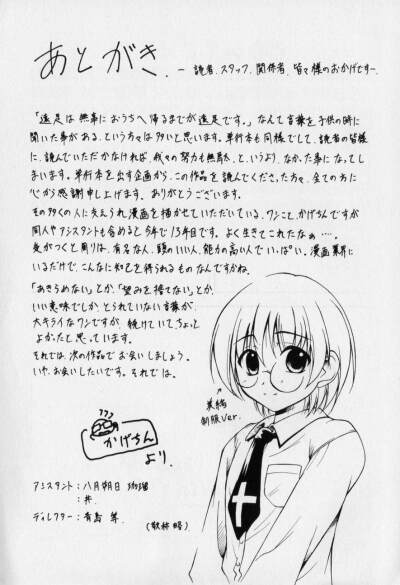 あとがき.
－読者、スタッフ、関係者、皆々様のおかげですー
「遠足は無事におうちへ帰るまでが遠足です。」なんて言葉を子供の時に
聞いた事がある、という方々は多いと思います。単行本も同様でして、読者の皆様
に、読んでいただかなければ、我々の努力も無駄、というより、なかった事になってし
まいます。単行本を出す企画から、この作品を読んでくださった方々、全ての方に
心から感謝申し上げます。ありがとうございます。
その多くの人に支えられ漫画を描かせていただいている、ワシこと、かげちんですが
同人やアシスタントも含めると今年で13年目です。よく生きてこれたなぁ……。
気がつくと周りは、有名な人、頭のいい人、能力の高い人でいっぱい。漫画業界に
いるだけで、こんなに知己を得られるものなんですかね。
「あきらめない」とか、「望みを捨てない」とか、
いい意味でしか、とられていない言葉が、
大キライなワシですが、続けていて、ちょっと
よかったと思っています。
それでは、次の作品でお会いしましょう。
いや、お会いしたいです。それでは。
美緒
制服Ver.
かげちん
より.
アシスタント：八月朔日 珈瑠
：丼
ディレクター：有島 昇
(敬称略)